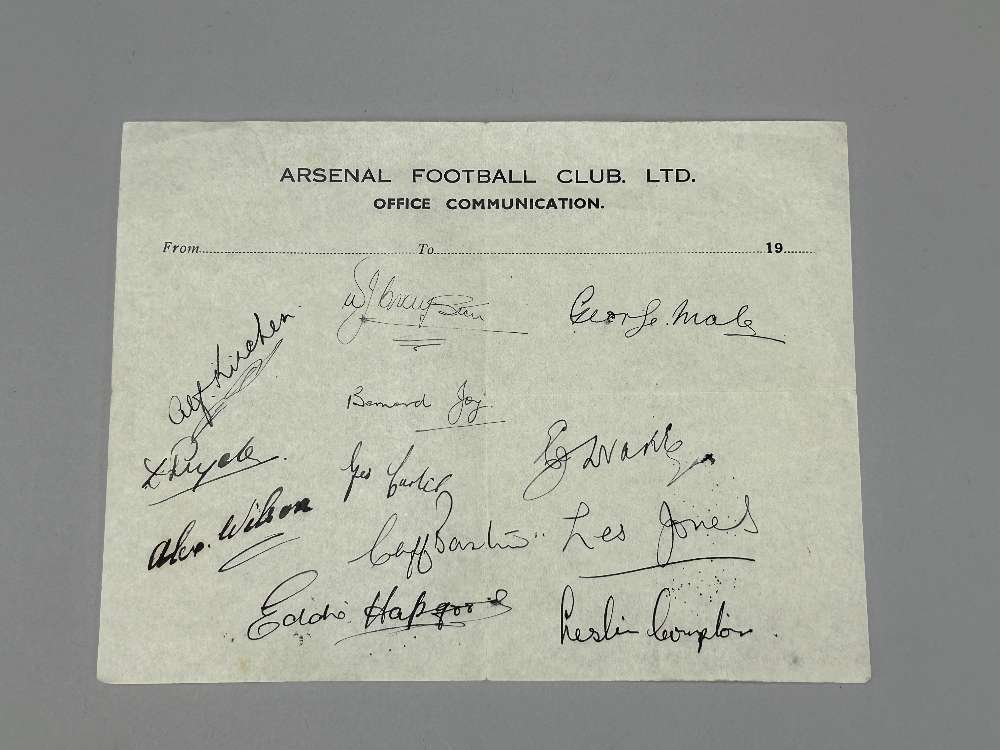 ARSENAL FOOTBALL CLUB. LTD.
OFFICE COMMUNICATION.
From To 19
George. Male
Alf. Kirchen
Bernard Joy.
Alex. Wilson
Cliff Bastin
Les Jones
Eddie Hapgood
Leslie Compton.